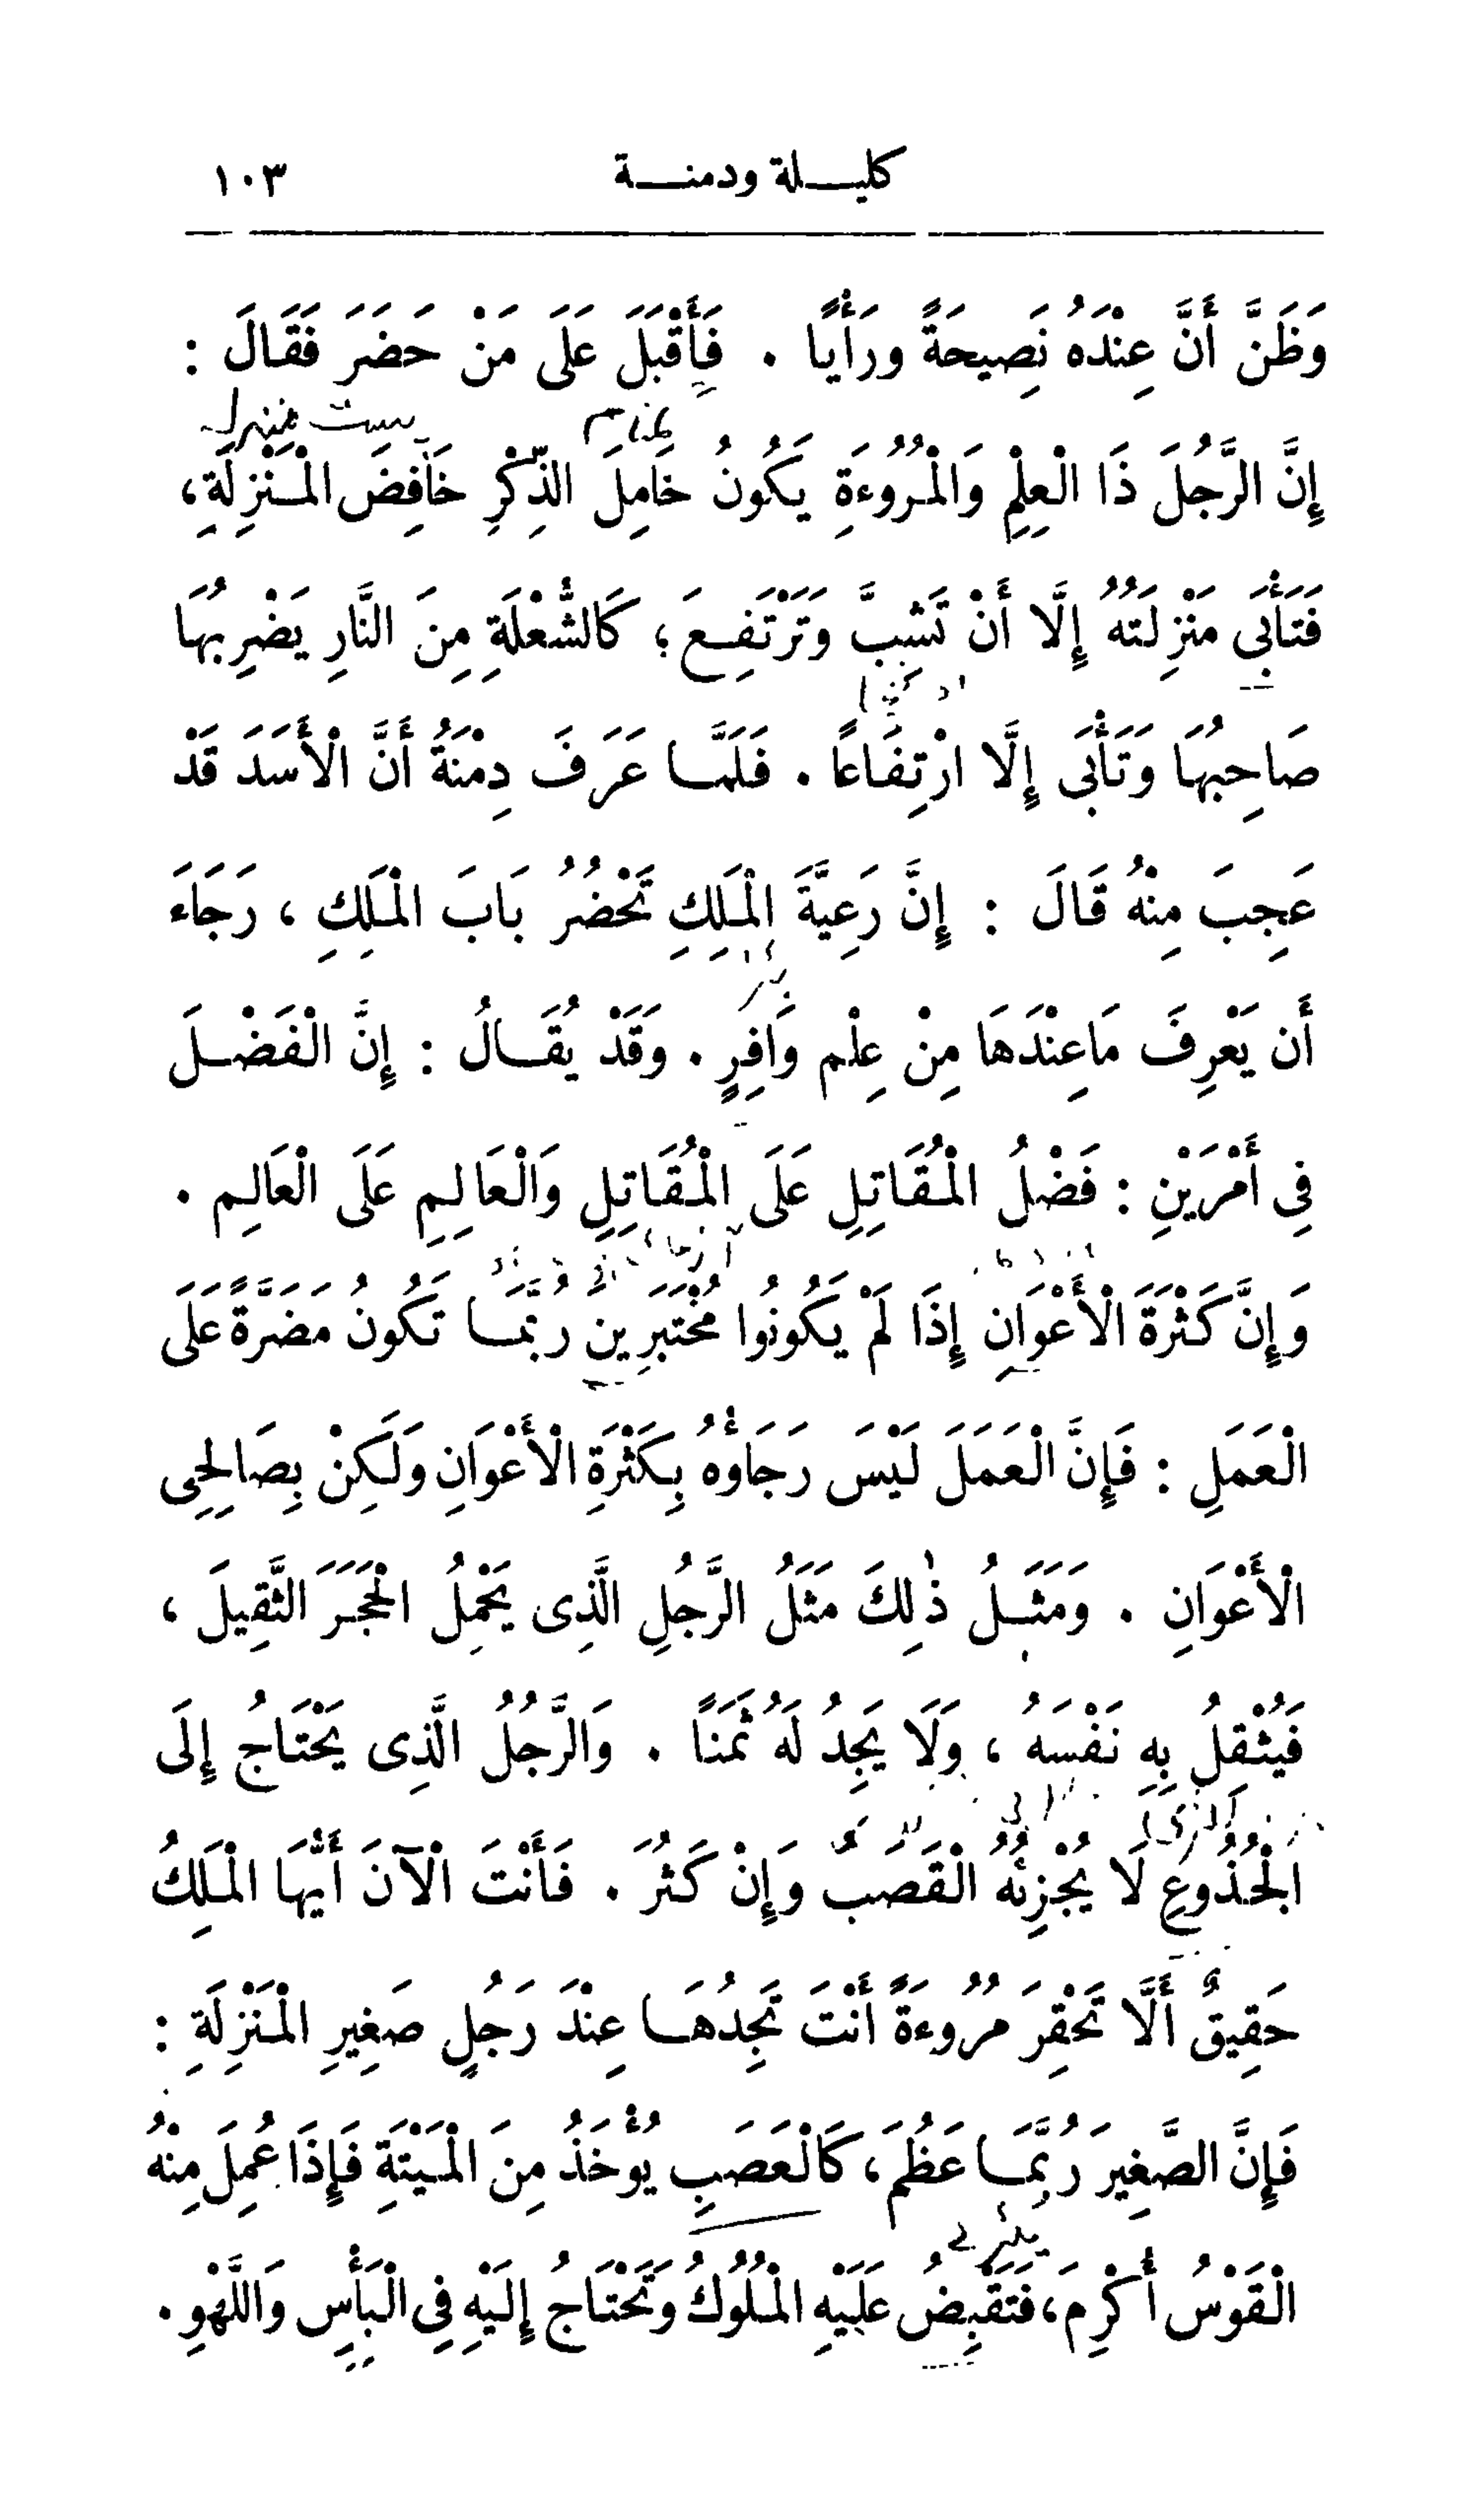 كليلة ودمنة ١٠٣
وَظَنَّ أَنَّ عِنْدَهُ نَصِيحَةً ورَأْيًا . فَأَقْبَلَ عَلَى مَنْ حَضَرَ فَقَالَ :
إِنَّ الرَّجُلَ ذَا الْعِلْمِ وَالْمُرُوءَةِ يَكُونُ خَامِلَ الذِّكْرِ خَافِضَ الْمَنْزِلَةِ،
فَتَأْبَى مَنْزِلَتُهُ إِلَّا أَنْ تَشِبَّ وَتَرْتَفِعَ ؛ كَالشُّعْلَةِ مِنَ النَّارِ يَضْرِبُهَا
صَاحِبُهَا وَتَأْبَى إِلَّا ارْتِفَاعًا . فَلَمَّا عَرَفَ دِمْنَةُ أَنَّ الْأَسَدَ قَدْ
عَجِبَ مِنْهُ قَالَ : إِنَّ رَعِيَّةَ الْمَلِكِ تَحْضُرُ بَابَ الْمَلِكِ ، رَجَاءَ
أَن يَعْرِفَ مَاعِنْدَهَا مِنْ عِلْمٍ وَافِرٍ . وَقَدْ يُقَالُ : إِنَّ الْفَضْلَ
فِي أَمْرَيْنِ : فَضْلُ الْمُقَاتِلِ عَلَى الْمُقَاتِلِ وَالْعَالِمِ عَلَى الْعَالِمِ .
وَإِنَّ كَثْرَةَ الْأَعْوَانِ إِذَا لَمْ يَكُونُوا مُخْتَبَرِينَ رُبَّمَا تَكُونُ مَضَرَّةً عَلَى
الْعَمَلِ : فَإِنَّ الْعَمَلَ لَيْسَ رَجَاؤُهُ بِكَثْرَةِ الْأَعْوَانِ وَلَكِنْ بِصَالِحِي
الْأَعْوَانِ . وَمَثَلُ ذٰلِكَ مَثَلُ الرَّجُلِ الَّذِى يَحْمِلُ الْحَجَرَ الثَّقِيلَ ،
فَيُثْقِلُ بِهِ نَفْسَهُ ، وَلَا يَجِدُ لَهُ ثَمَنًا . وَالرَّجُلُ الَّذِى يَحْتَاجُ إِلَى
الْجُذُوعِ لَا يُجْزِئُهُ الْقَصَبُ وَإِنْ كَثُرَ . فَأَنْتَ الْآنَ أَيُّهَا الْمَلِكُ
حَقِيقٌ أَلَّا تَحْقِرَ مُرُوءَةً أَنْتَ تَجِدُهَا عِنْدَ رَجُلٍ صَغِيرِ الْمَنْزِلَةِ :
فَإِنَّ الصَّغِيرَ رُبَّمَا عَظُمَ ، كَالْعَصَبِ يُؤْخَذُ مِنَ الْمَيْتَةِ فَإِذَا عُمِلَ مِنْهُ
الْقَوْسُ أُكْرِمَ، فَتَقْبِضُ عَلَيْهِ الْمُلُوكُ وَتَحْتَاجُ إِلَيْهِ فِي الْبَأْسِ وَاللَّهْوِ .